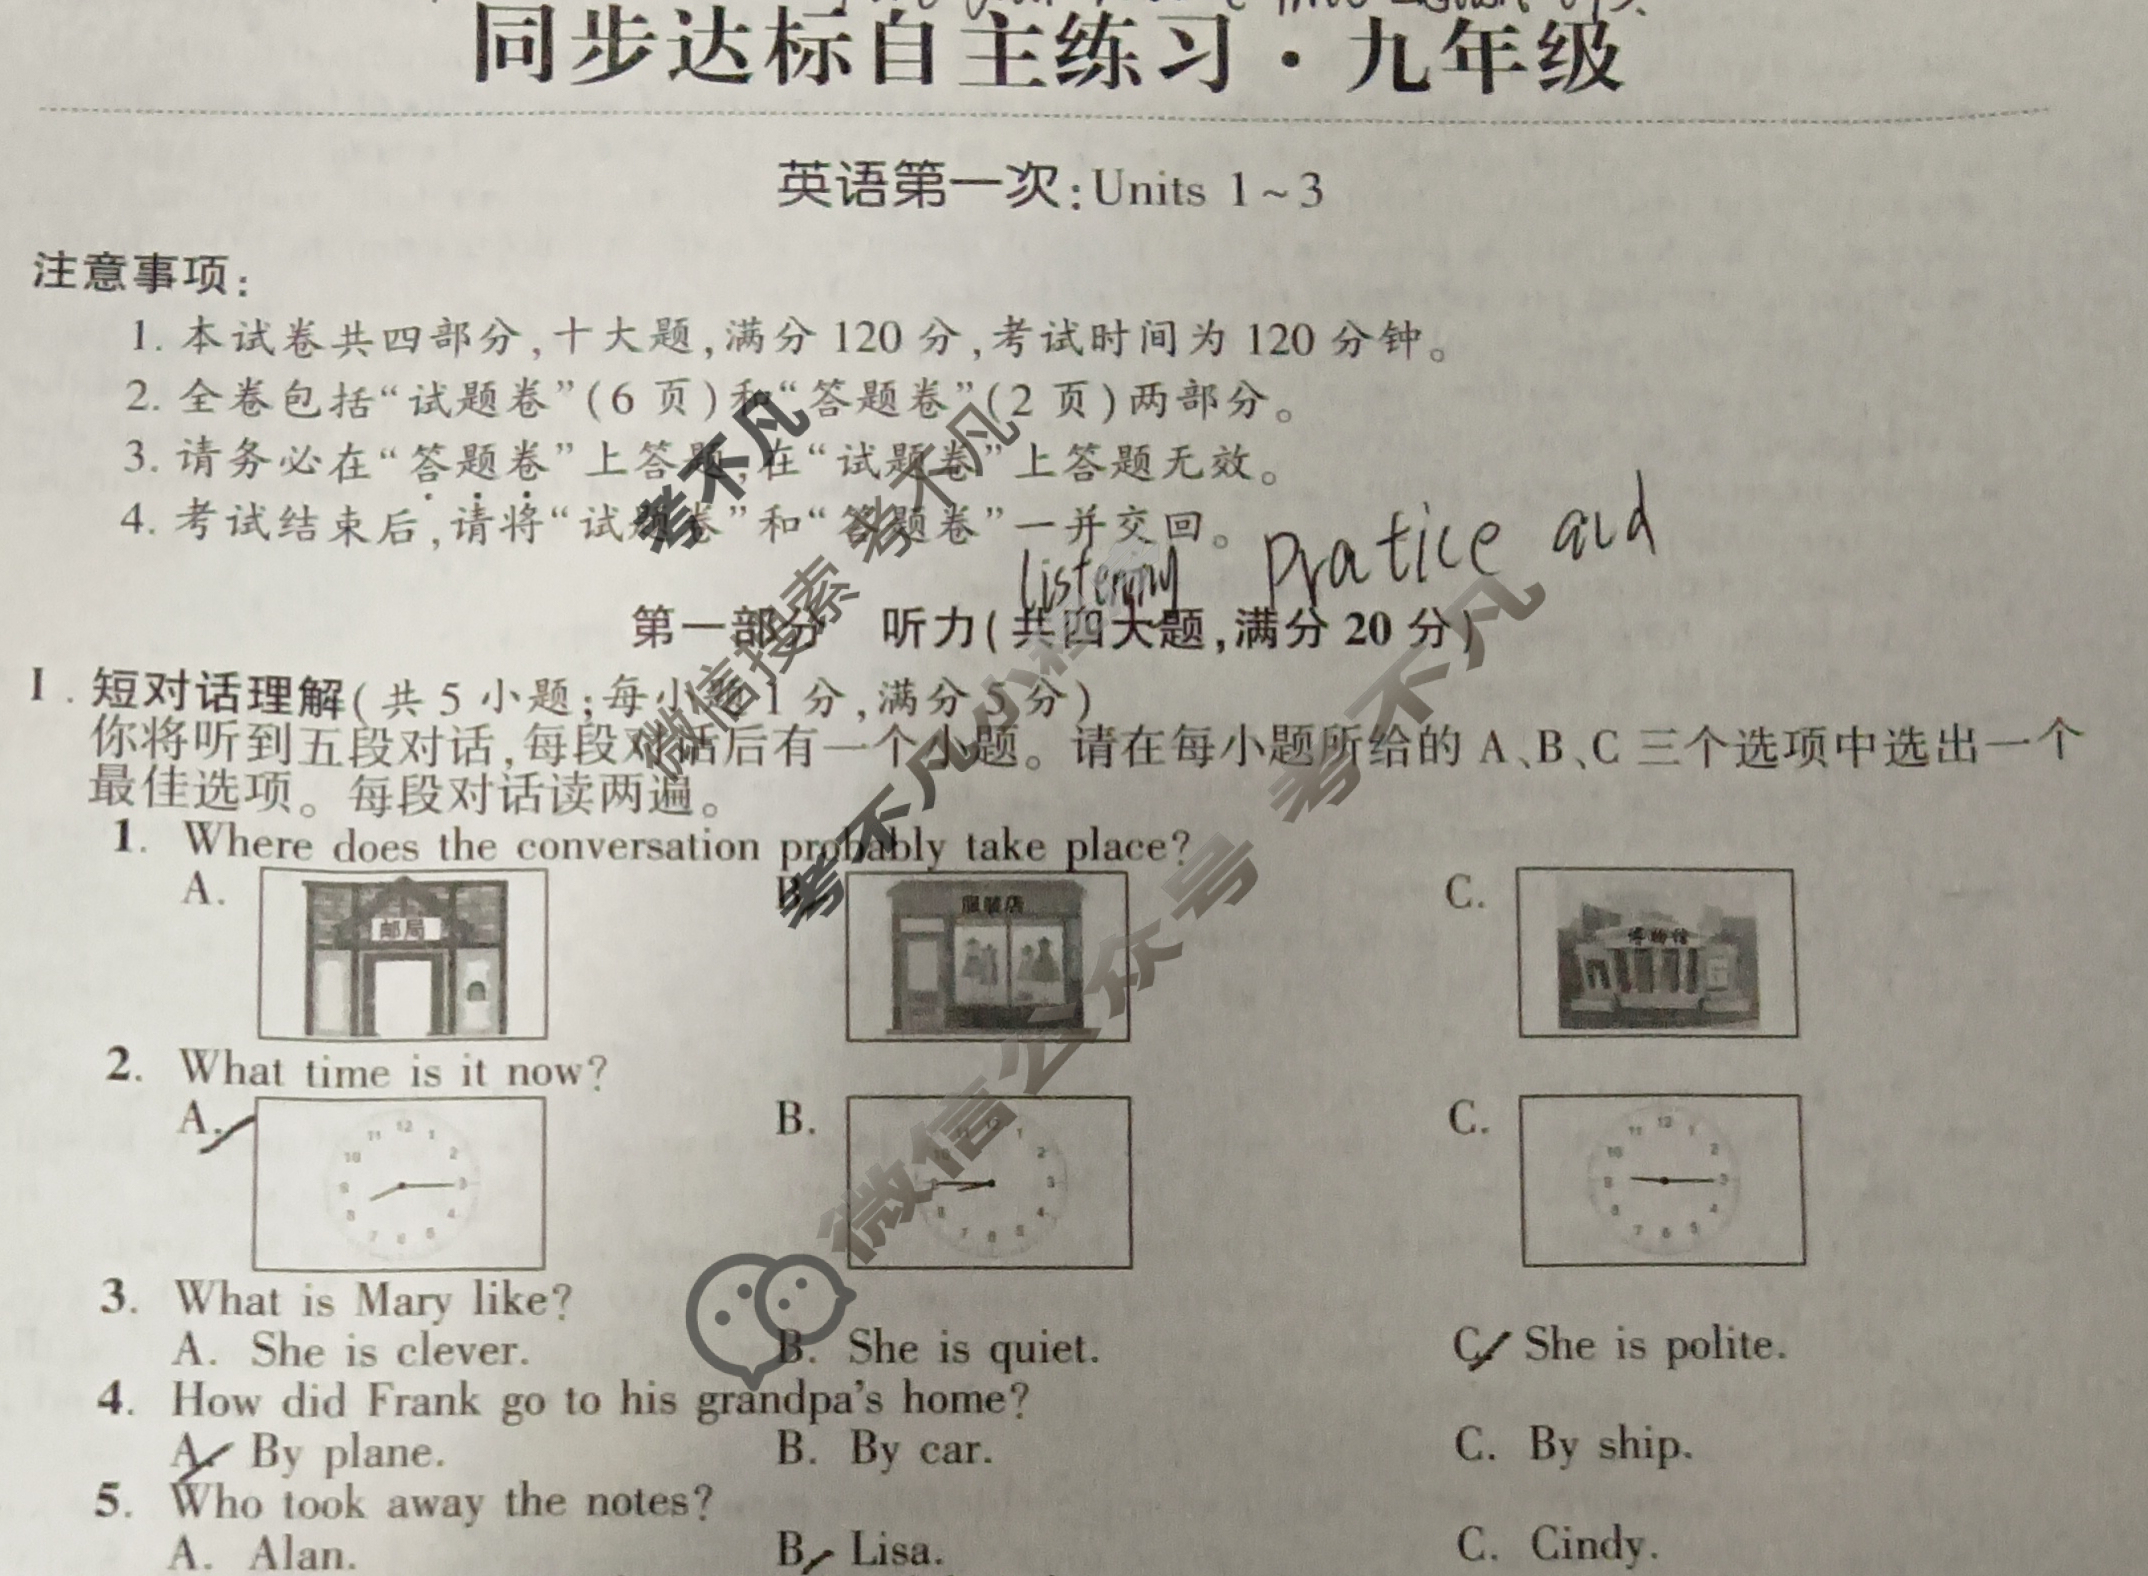 同步达标自主练习·九年级
英语第一次:Units 1~3
注意事项:
1. 本试卷共四部分,十大题,满分 120 分,考试时间为 120 分钟。
2. 全卷包括“试题卷”(6 页)和“答题卷”(2 页)两部分。
3. 请务必在“答题卷”上答题,在“试题卷”上答题无效。
4. 考试结束后,请将“试题卷”和“答题卷”一并交回。
listening pratice and
第一部分 听力(共四大题,满分 20 分)
I. 短对话理解(共 5 小题;每小题 1 分,满分 5 分)
你将听到五段对话,每段对话后有一个小题。请在每小题所给的 A、B、C 三个选项中选出一个
最佳选项。每段对话读两遍。
1. Where does the conversation probably take place?
A. 邮局 B. 服装店 C. 博物馆
2. What time is it now?
A. B. C.
3. What is Mary like?
A. She is clever. B. She is quiet. C. She is polite.
4. How did Frank go to his grandpa's home?
A. By plane. B. By car. C. By ship.
5. Who took away the notes?
A. Alan. B. Lisa. C. Cindy.
考不凡
微信搜索 考不凡
考不凡小程
微信公众号 考不凡